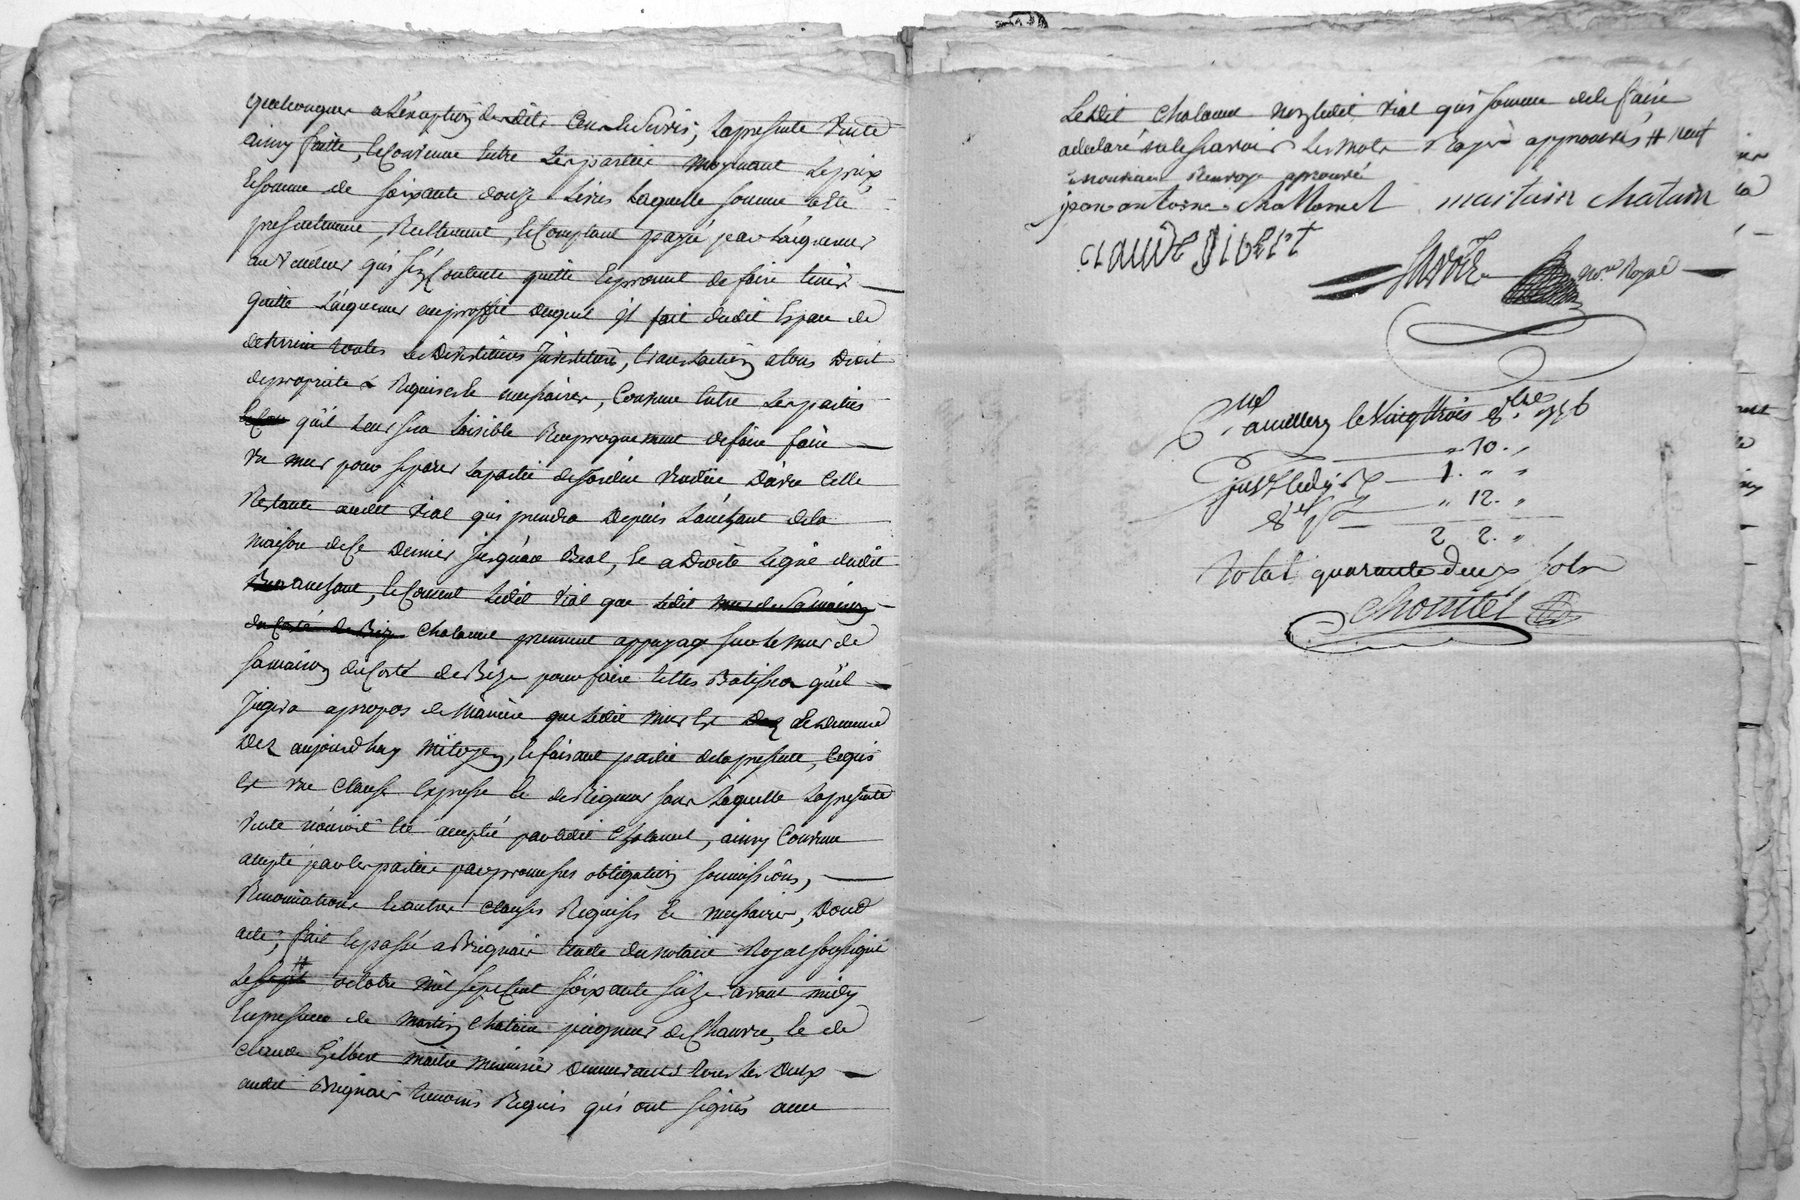 quelconques a L'éxception desdits Cens et Servis, La presente Vente
ainsy faitte, et Convenue Entre Les parties moyenant Le prix
Et somme de soixante douze Livres Laquelle somme a Eté
presentement, Reellement, et Comptant payée par L'aiquereur
au Vendeur qui s'en Contente quitte Et promet de faire tenir
quitte L'aiquereur au proffit duquel il fait dudit Espace de
de terrein toutes Les Devetitures Investitures, translation a tous Droit
de propriété Requises Et necessaires, Convenu Entre Les parties
qu'il Leur sera Loisible Reciproquement de faire faire
un mur pour separer La partie de Jardin Vendüe D'avec Celle
Restante audit Vial qui prendra Depuis Laneizant de la
maison de Ce Dernier Jusqu'au Beal, Et a Droite Ligne dudit
aneizant, Et Consent Ledit Vial que Ledit mur de Sa maison
du Coté de Bize Chalamel prennent appuyage sur Le mur de
sa maison du Coté de Bize pour faire telles Batisses qu'il
Jugera apropos de Maniere que Ledit mur Est Et Demeure
Dez aujourd'huy mitoyen, Et faisant partie de la presente, Ce qui
Est une Clause Expresse Et de Rigueur sans Laquelle La presente
Vente n'auroit Eté acceptée par Ledit Chalamel, ainsy Convenu
accepté par Les parties par promesses obligation soumissions,
Renonciations Et autres Clauses Requises Et necessaires, Dont
acte; fait Et passé a Brignais Etude du notaire Royal soussigné
Le sept octobre mil sept Cent soixante seize avant midy
En presence de Martin Chatain peigneur de Chanvre, Et de
Claude Gilbert maitre Menuisier Demeurants tous Les Deux
audit Brignais temoins Requis qui ont signés avec
Ledit Chalamel non Ledit Vial qui sommé de le faire
a declaré ne le savoir Les mots Rayés approuvés # neuf
Renvoy aprouvé
jean antoine challamel martain chatain
CLAUDE GIBERT
no.re Royal
le Vingt trois 8.bre 1776
10.
1. " "
" 12. "
2 2. "
Total quarante deux sols